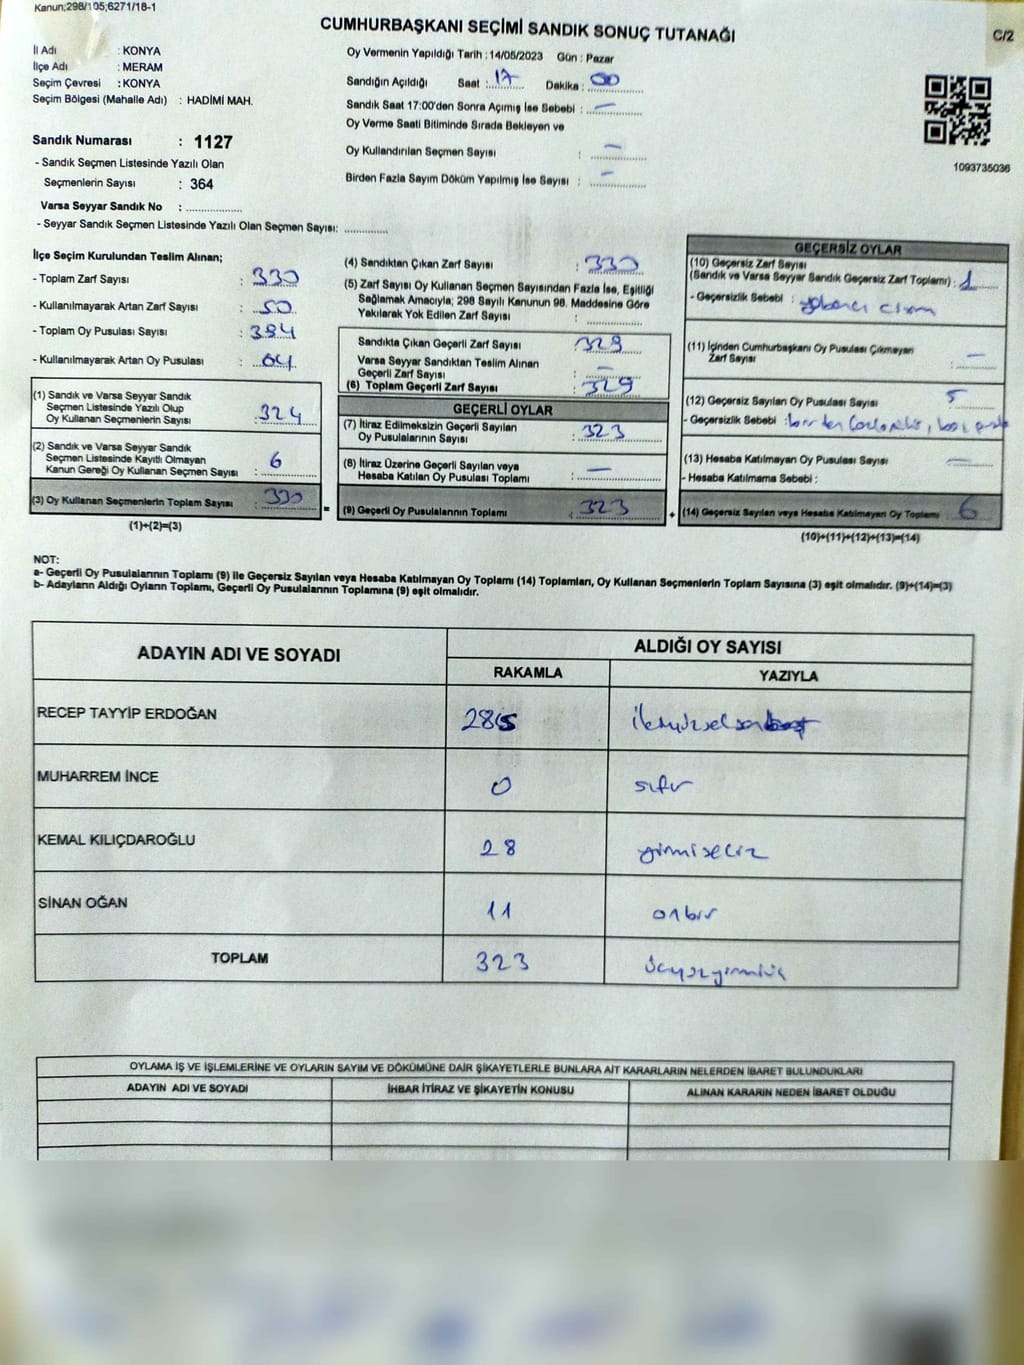 Kanun;298/105;6271/18-1
CUMHURBAŞKANI SEÇİMİ SANDIK SONUÇ TUTANAĞI
C/2
İl Adı : KONYA
İlçe Adı : MERAM
Seçim Çevresi : KONYA
Seçim Bölgesi (Mahalle Adı) : HADİMİ MAH.
Sandık Numarası : 1127
- Sandık Seçmen Listesinde Yazılı Olan
Seçmenlerin Sayısı : 364
Varsa Seyyar Sandık No : ..................
- Seyyar Sandık Seçmen Listesinde Yazılı Olan Seçmen Sayısı: ..............
Oy Vermenin Yapıldığı Tarih : 14/05/2023 Gün : Pazar
Sandığın Açıldığı Saat : 17 Dakika : 00
Sandık Saat 17:00'den Sonra Açımış İse Sebebi : —
Oy Verme Saati Bitiminde Sırada Bekleyen ve
Oy Kullandırılan Seçmen Sayısı : —
Birden Fazla Sayım Döküm Yapılmış İse Sayısı : —
1093735036
İlçe Seçim Kurulundan Teslim Alınan;
- Toplam Zarf Sayısı : 330
- Kullanılmayarak Artan Zarf Sayısı : 50
- Toplam Oy Pusulası Sayısı : 394
- Kullanılmayarak Artan Oy Pusulası : 64
(1) Sandık ve Varsa Seyyar Sandık
Seçmen Listesinde Yazılı Olup
Oy Kullanan Seçmenlerin Sayısı : 324
(2) Sandık ve Varsa Seyyar Sandık
Seçmen Listesinde Kayıtlı Olmayan
Kanun Gereği Oy Kullanan Seçmen Sayısı : 6
(3) Oy Kullanan Seçmenlerin Toplam Sayısı : 330
(1)+(2)=(3)
=
(4) Sandıktan Çıkan Zarf Sayısı : 330
(5) Zarf Sayısı Oy Kullanan Seçmen Sayısından Fazla İse, Eşitliği
Sağlamak Amacıyla; 298 Sayılı Kanunun 98. Maddesine Göre
Yakılarak Yok Edilen Zarf Sayısı : ..................
Sandıkta Çıkan Geçerli Zarf Sayısı : 329
Varsa Seyyar Sandıktan Teslim Alınan
Geçerli Zarf Sayısı : —
(6) Toplam Geçerli Zarf Sayısı : 329
GEÇERLİ OYLAR
(7) İtiraz Edilmeksizin Geçerli Sayılan
Oy Pusulalarının Sayısı : 323
(8) İtiraz Üzerine Geçerli Sayılan veya
Hesaba Katılan Oy Pusulası Toplamı : —
(9) Geçerli Oy Pusulalarının Toplamı : 323
+
GEÇERSİZ OYLAR
(10) Geçersiz Zarf Sayısı
(Sandık ve Varsa Seyyar Sandık Geçersiz Zarf Toplamı) : 1
- Geçersizlik Sebebi : yabancı cisim
(11) İçinden Cumhurbaşkanı Oy Pusulası Çıkmayan
Zarf Sayısı : —
(12) Geçersiz Sayılan Oy Pusulası Sayısı : 5
- Geçersizlik Sebebi : birden
(13) Hesaba Katılmayan Oy Pusulası Sayısı : —
- Hesaba Katılmama Sebebi :
(14) Geçersiz Sayılan veya Hesaba Katılmayan Oy Toplamı 6
(10)+(11)+(12)+(13)=(14)
NOT:
a- Geçerli Oy Pusulalarının Toplamı (9) ile Geçersiz Sayılan veya Hesaba Katılmayan Oy Toplamı (14) Toplamları, Oy Kullanan Seçmenlerin Toplam Sayısına (3) eşit olmalıdır. (9)+(14)=(3)
b- Adayların Aldığı Oyların Toplamı, Geçerli Oy Pusulalarının Toplamına (9) eşit olmalıdır.
ADAYIN ADI VE SOYADI ALDIĞI OY SAYISI
RAKAMLA YAZIYLA
RECEP TAYYİP ERDOĞAN 285
MUHARREM İNCE 0 sıfır
KEMAL KILIÇDAROĞLU 28 yirmisekiz
SİNAN OĞAN 11 onbir
TOPLAM 323 üçyüzyirmiüç
OYLAMA İŞ VE İŞLEMLERİNE VE OYLARIN SAYIM VE DÖKÜMÜNE DAİR ŞİKAYETLERLE BUNLARA AİT KARARLARIN NELERDEN İBARET BULUNDUKLARI
ADAYIN ADI VE SOYADI İHBAR İTİRAZ VE ŞİKAYETİN KONUSU ALINAN KARARIN NEDEN İBARET OLDUĞU